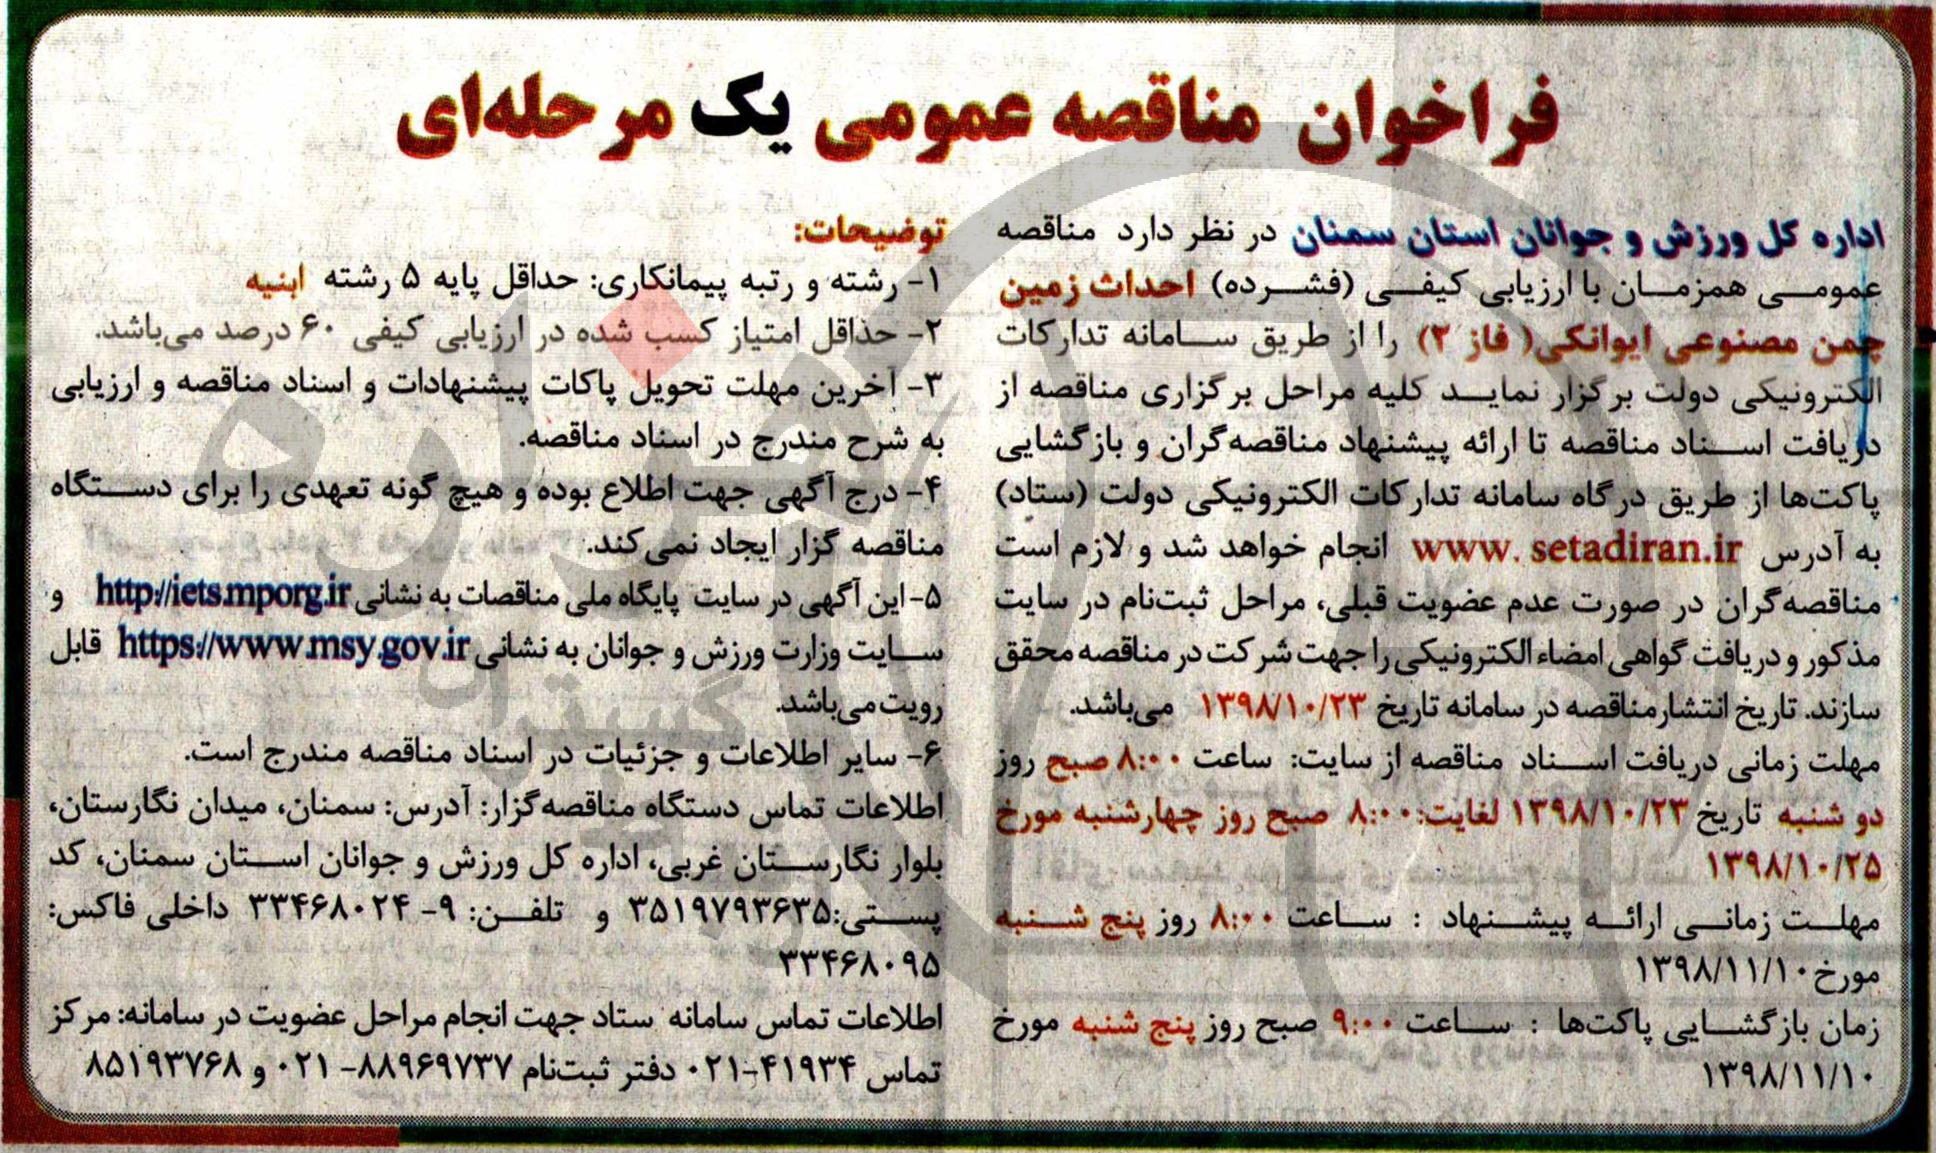 فراخوان مناقصه عمومی یک مرحله‌ای
اداره کل ورزش و جوانان استان سمنان در نظر دارد مناقصه
عمومی همزمان با ارزیابی کیفی (فشرده) احداث زمین
چمن مصنوعی ایوانکی( فاز ۲) را از طریق سامانه تدارکات
الکترونیکی دولت برگزار نماید کلیه مراحل برگزاری مناقصه از
دریافت اسناد مناقصه تا ارائه پیشنهاد مناقصه‌گران و بازگشایی
پاکت‌ها از طریق درگاه سامانه تدارکات الکترونیکی دولت (ستاد)
به آدرس www. setadiran.ir انجام خواهد شد و لازم است
مناقصه‌گران در صورت عدم عضویت قبلی، مراحل ثبت‌نام در سایت
مذکور و دریافت گواهی امضاء الکترونیکی را جهت شرکت در مناقصه محقق
سازند. تاریخ انتشار مناقصه در سامانه تاریخ ۱۳۹۸/۱۰/۲۳ می‌باشد.
مهلت زمانی دریافت اسناد مناقصه از سایت: ساعت ۸:۰۰ صبح روز
دو شنبه تاریخ ۱۳۹۸/۱۰/۲۳ لغایت:۸:۰۰ صبح روز چهارشنبه مورخ
۱۳۹۸/۱۰/۲۵
مهلت زمانی ارائه پیشنهاد : ساعت ۸:۰۰ روز پنج شنبه
مورخ ۱۳۹۸/۱۱/۱۰
زمان بازگشایی پاکت‌ها : ساعت ۹:۰۰ صبح روز پنج شنبه مورخ
۱۳۹۸/۱۱/۱۰
توضیحات:
۱- رشته و رتبه پیمانکاری: حداقل پایه ۵ رشته ابنیه
۲- حداقل امتیاز کسب شده در ارزیابی کیفی ۶۰ درصد می‌باشد.
۳- آخرین مهلت تحویل پاکات پیشنهادات و اسناد مناقصه و ارزیابی
به شرح مندرج در اسناد مناقصه.
۴- درج آگهی جهت اطلاع بوده و هیچ گونه تعهدی را برای دستگاه
مناقصه گزار ایجاد نمی‌کند.
۵- این آگهی در سایت پایگاه ملی مناقصات به نشانی http://iets.mporg.ir و
سایت وزارت ورزش و جوانان به نشانی https://www.msy.gov.ir قابل
رویت می‌باشد.
۶- سایر اطلاعات و جزئیات در اسناد مناقصه مندرج است.
اطلاعات تماس دستگاه مناقصه‌گزار: آدرس: سمنان، میدان نگارستان،
بلوار نگارستان غربی، اداره کل ورزش و جوانان استان سمنان، کد
پستی:۳۵۱۹۷۹۳۶۳۵ و تلفن: ۹- ۳۳۴۶۸۰۲۴ داخلی فاکس:
۳۳۴۶۸۰۹۵
اطلاعات تماس سامانه ستاد جهت انجام مراحل عضویت در سامانه: مرکز
تماس ۴۱۹۳۴-۰۲۱ دفتر ثبت‌نام ۸۸۹۶۹۷۳۷- ۰۲۱ و ۸۵۱۹۳۷۶۸